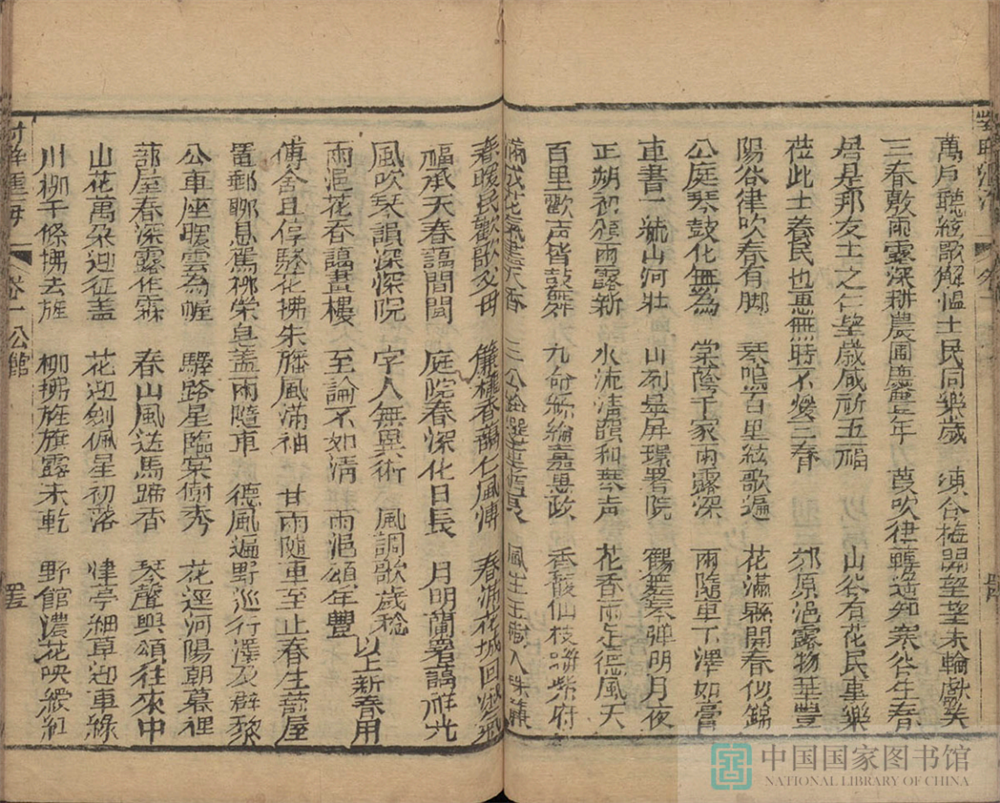 萬戶聽絃歌解慍士民同樂歲 凍合梅開望望朱輪獻笑
三春敷雨露深耕農圃慶長年 葭吹律轉遙知寒谷生春
君是那友土之仁望歲咸祈五福 山谷有花民事樂
莅此土養民也惠無時不愛三春 郊原浥露物華豐
陽谷律吹春有脚 琴鳴百里絃歌遍 花滿縣開春似錦
公庭琴鼓化無為 棠蔭千家雨露深 雨隨車下澤如膏
車書一統山河壯 山列畫屏環署院 鶴舞琴彈明月夜
正朔初頒雨露新 水流清韻和琴声 花香雨足德風天
百里歡声皆鼓舞 九命絲綸嘉惠政 香馥仙枝聯紫府
滿
春暖民歡歌父母 簾捲春蘭仁風溥 春滿花城回淑氣
福承天春藹閭閻 庭院春深化日長 月明蘭署藹祥光
風吹琴韻深深院 字人無異術 風調歌歲稔
雨浥花春藹畫樓 至論不如清 雨浥頌年豐 以上新春用
傅舍且停驂花拂朱旛風滿袖 甘雨隨車至止春生蔀屋
置郵聊息駕柳縈皂蓋雨隨車 德風遍野巡行澤及群黎
公車座暖雲為幄 驛路星臨棠樹秀 花逕河陽朝暮裡
蔀屋春深露作霖 春山風送馬蹄香 琴聲與頌往來中
山花萬朶迎征蓋 花迎劍佩星初落 津亭細草迎車綠
川柳千條拂去旌 柳拂旌旗露未乾 野館濃花映綬紅
卷一 公館
中国国家图书馆
NATIONAL LIBRARY OF CHINA